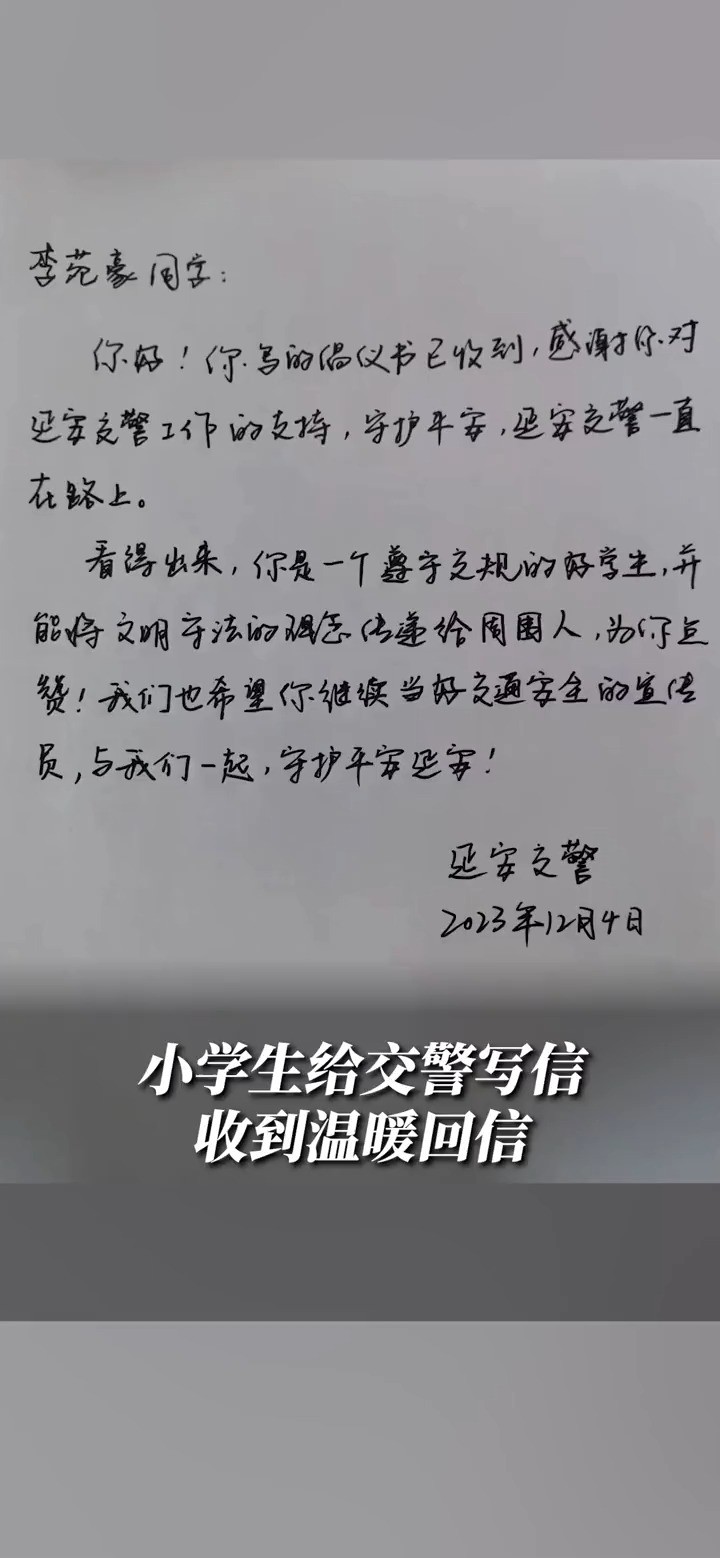 李苑豪同学：
你好！你写的倡仪书已收到，感谢你对
延安交警工作的支持，守护平安，延安交警一直
在路上。
看得出来，你是一个遵守交规的好学生，并
能将文明守法的理念传递给周围人，为你点
赞！我们也希望你继续当好交通安全的宣传
员，与我们一起，守护平安延安！
延安交警
2023年12月4日
小学生给交警写信
收到温暖回信